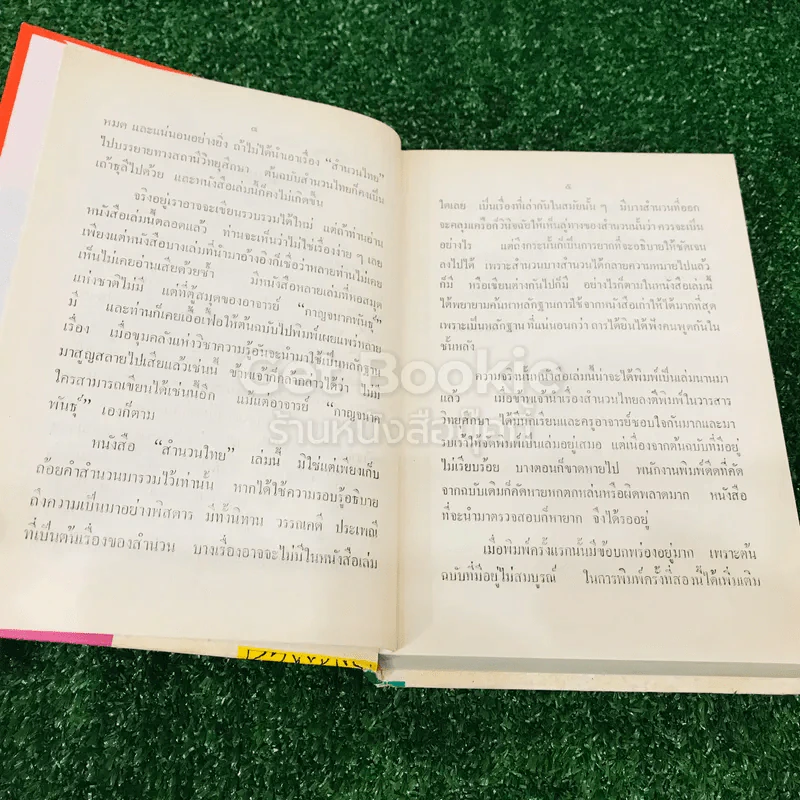 ๓
หมด และแน่นอนอย่างยิ่ง ถ้าไม่ได้นำเอาเรื่อง “สำนวนไทย”
ไปบรรยายทางสถานีวิทยุศึกษา ต้นฉบับสำนวนไทยก็คงเป็น
เถ้าธุลีไปด้วย และหนังสือเล่มนี้ก็คงไม่เกิดขึ้น
จริงอยู่เราอาจจะเขียนรวบรวมได้ใหม่ แต่ถ้าท่านอ่าน
หนังสือเล่มนี้ตลอดแล้ว ท่านจะเห็นว่าไม่ใช่เรื่องง่าย ๆ เลย
เพียงแต่หนังสือบางเล่มที่นำมาอ้างอิงก็เชื่อว่าหลายท่านไม่เคย
เห็นไม่เคยอ่านเสียด้วยซ้ำ มีหนังสือหลายเล่มที่หอสมุด
แห่งชาติไม่มี แต่ที่ตู้สมุดของอาจารย์ “กาญจนาคพันธุ์”
มี และท่านก็เคยเอื้อเฟื้อให้ต้นฉบับไปพิมพ์เผยแพร่หลาย
เรื่อง เมื่อขุมคลังแห่งวิชาความรู้อันจะนำมาใช้เป็นหลักฐาน
มาสูญสลายไปเสียแล้วเช่นนี้ ข้าพเจ้าก็กล้ากล่าวได้ว่า ไม่มี
ใครสามารถเขียนได้เช่นนี้อีก แม้แต่อาจารย์ “กาญจนาค
พันธุ์” เองก็ตาม
หนังสือ “สำนวนไทย” เล่มนี้ มิใช่แต่เพียงเก็บ
ถ้อยคำสำนวนมารวมไว้เท่านั้น หากได้ใช้ความรอบรู้อธิบาย
ถึงความเป็นมาอย่างพิสดาร มีทั้งนิทาน วรรณคดี ประเพณี
ที่เป็นต้นเรื่องของสำนวน บางเรื่องอาจจะไม่มีในหนังสือเล่ม
๔
ใดเลย เป็นเรื่องที่เล่ากันในสมัยนั้น ๆ มีบางสำนวนที่ออก
จะคลุมเครือก็วินิจฉัยให้เห็นลู่ทางของสำนวนนั้นว่า ควรจะเป็น
อย่างไร แต่ถึงกระนั้นก็เป็นการยากที่จะอธิบายให้ชัดเจน
ลงไปได้ เพราะสำนวนบางสำนวนได้กลายความหมายไปแล้ว
ก็มี หรือเขียนต่างกันไปก็มี อย่างไรก็ตามในหนังสือเล่มนี้
ได้พยายามค้นหาหลักฐานการใช้จากหนังสือเก่าให้ได้มากที่สุด
เพราะเป็นหลักฐาน ที่แน่นอนกว่า การได้ยินได้ฟังคนพูดกันใน
ชั้นหลัง
ความจริงนั้นหนังสือเล่มนี้น่าจะได้พิมพ์เป็นเล่มนานมา
แล้ว เมื่อข้าพเจ้านำเรื่องสำนวนไทยลงตีพิมพ์ในวารสาร
วิทยุศึกษา ได้มีนักเรียนและครูอาจารย์ชอบใจกันมากและมา
เร้าให้จัดพิมพ์เป็นเล่มอยู่เสมอ แต่เนื่องจากต้นฉบับที่มีอยู่
ไม่เรียบร้อย บางตอนก็ขาดหายไป พนักงานพิมพ์ดีดที่คัด
จากฉบับเดิมก็คัดหายหกตกหล่นหรือผิดพลาดมาก หนังสือ
ที่จะนำมาตรวจสอบก็หายาก จึงได้รออยู่
เมื่อพิมพ์ครั้งแรกนั้นมีข้อบกพร่องอยู่มาก เพราะต้น
ฉบับที่มีอยู่ไม่สมบูรณ์ ในการพิมพ์ครั้งที่สองนี้ได้เพิ่มเติม
Get Bookie
ร้านหนังสือมือสอง